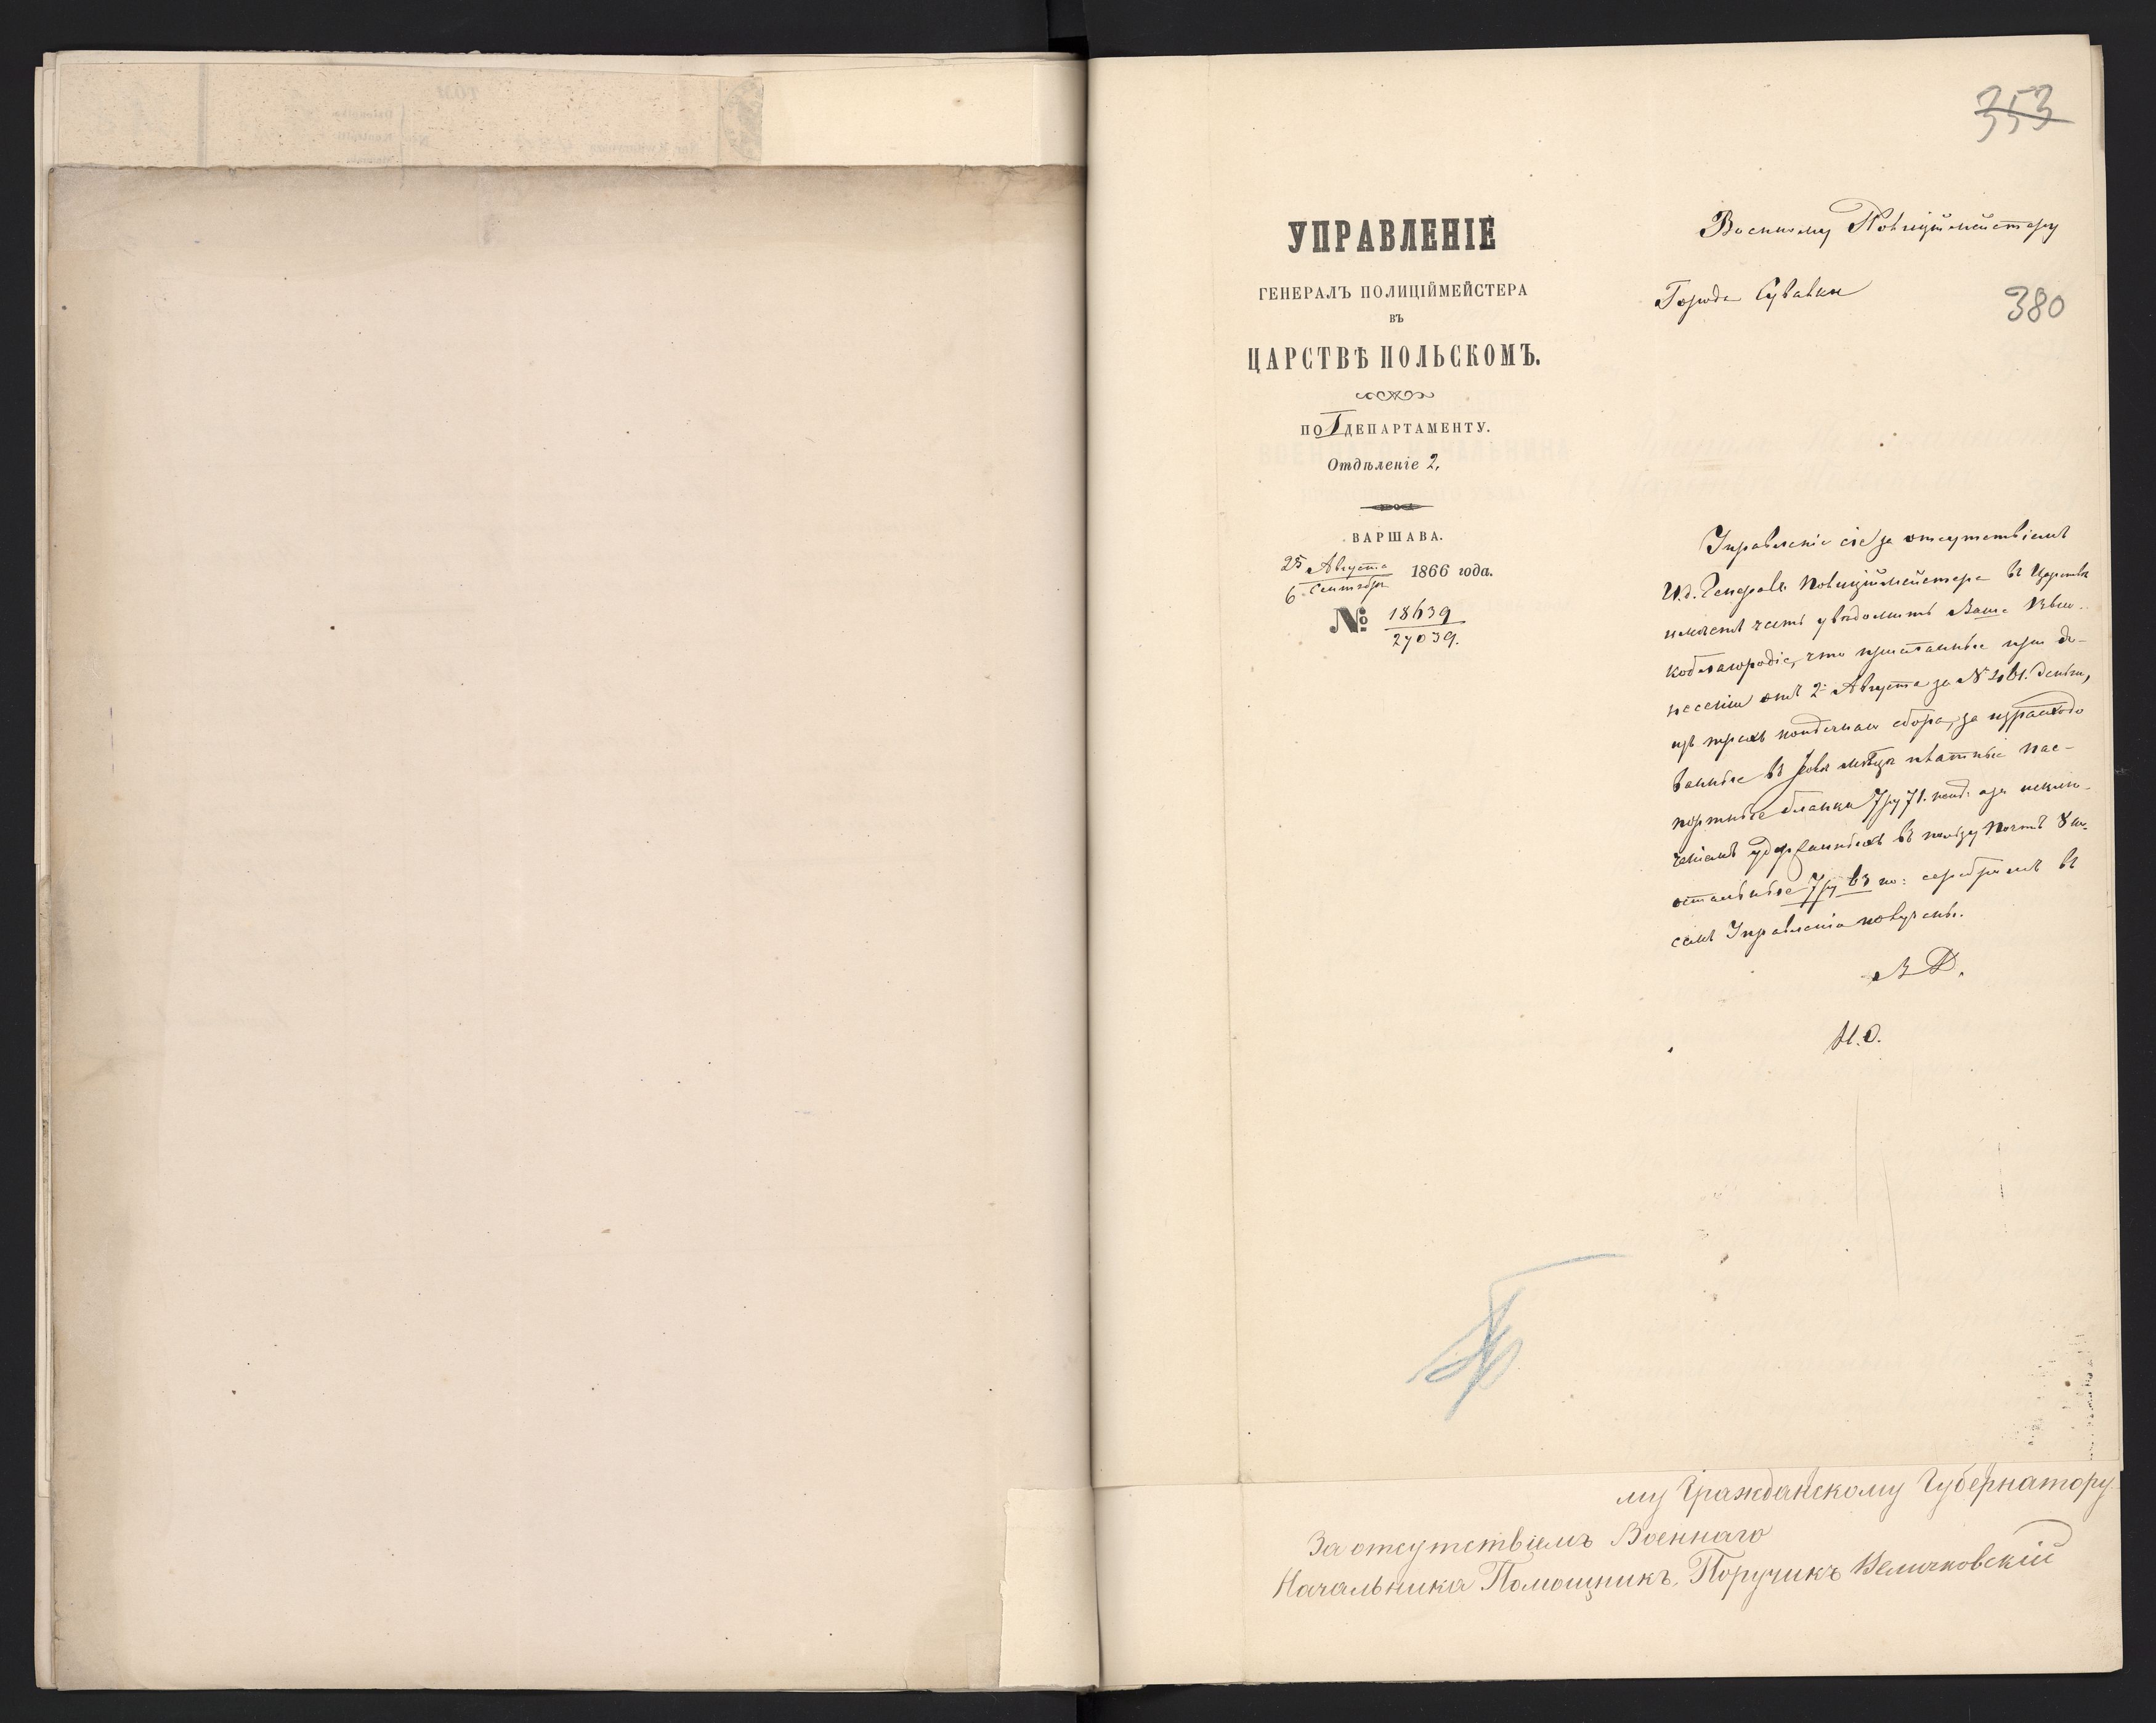 353
УПРАВЛЕНІЕ
ГЕНЕРАЛЪ ПОЛИЦІЙМЕЙСТЕРА
ВЪ
ЦАРСТВѢ ПОЛЬСКОМЪ.
ПО I ДЕПАРТАМЕНТУ.
Отдѣленіе 2.
ВАРШАВА.
25 Августа
6 Сентября 1866 года.
№ 18639
27039.
Военному Полиціймейстеру
Города Сувалки
380
Управленіе сіе за отсутствіемъ
И.д. Генералъ Полиціймейстера въ Царствѣ
имѣетъ честь увѣдомить Ваше Высо-
коблагородіе, что присланные при до-
несеніи отъ 2 Августа за № деньги,
сбора, за израсходо
ванные въ мѣсяцѣ платные пас-
портные бланки 7 ру 71. за исклю-
ченіемъ удержанныхъ въ пользу Почтъ 8 ко.
остальные 7 ру 63 ко: серебромъ въ
семъ Управленіи получены.
И.О.
му Гражданскому Губернатору
За отсутствіемъ Военнаго
Начальника Помощникъ, Поручикъ Величковскій